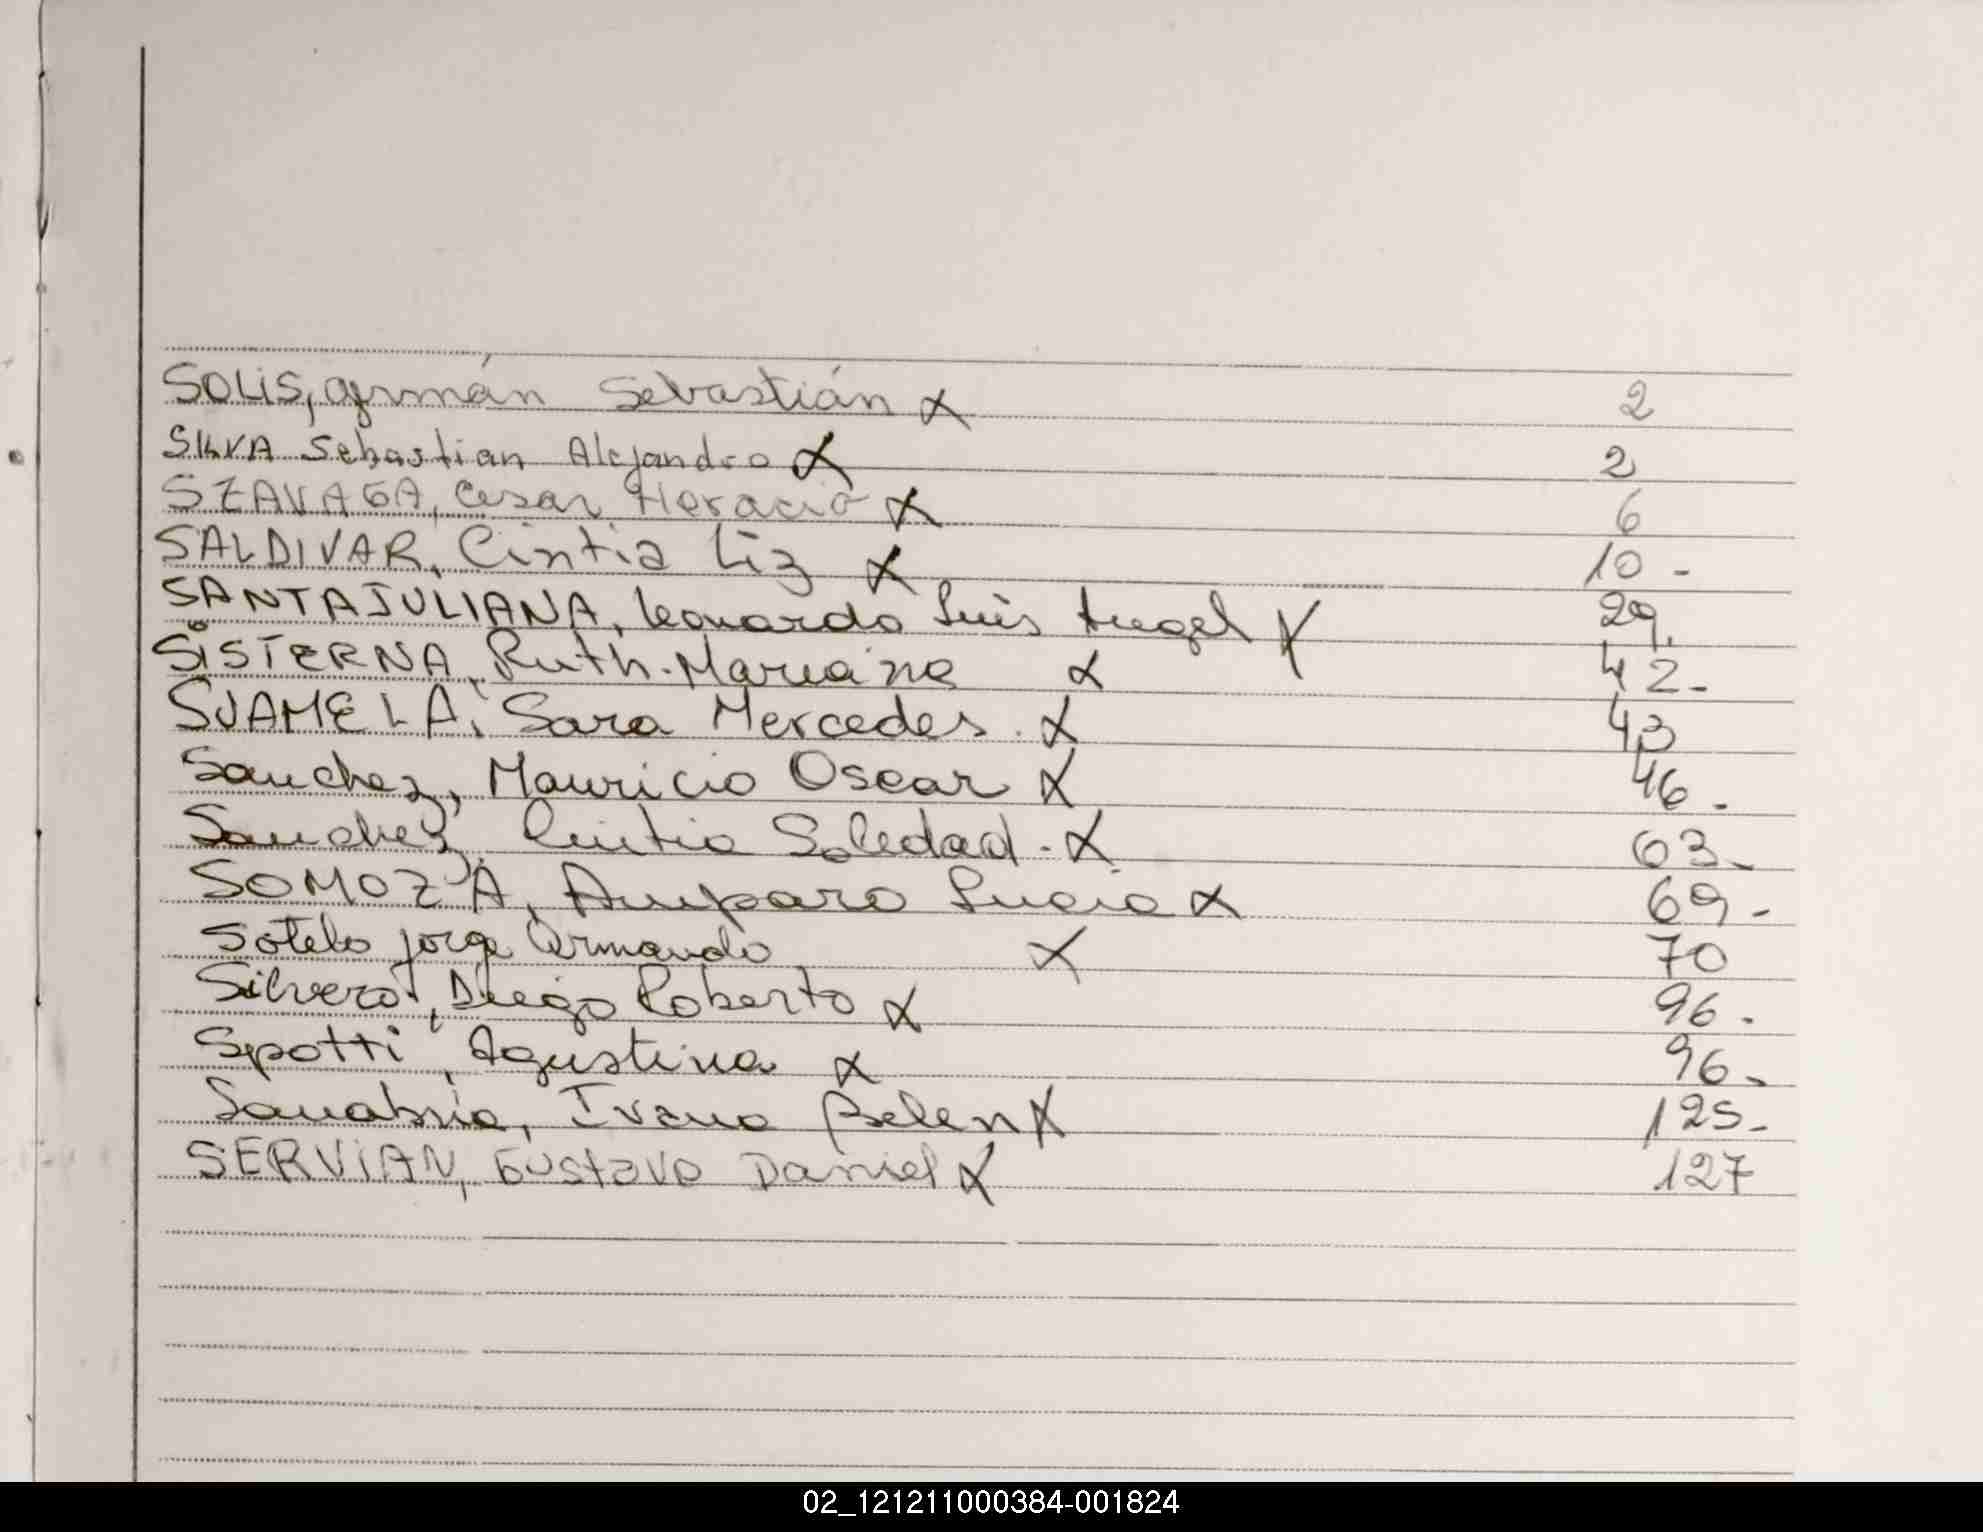 SOLIS, Germán Sebastián X 2
SILVA Sebastian Alejandro X 2
SZAVAGA, Cesar Horacio X 6
SALDIVAR, Cintia Liz X 10 -
SANTAJULIANA, Leonardo Luis Angel X 29.
SISTERNA, Ruth Mariana X 42 -
SJAMELA, Sara Mercedes. X 43
Sanchez, Mauricio Oscar X 46 -
Sanchez, Cintia Soledad - X 63 -
SOMOZA, Amparo Lucia X 69 -
Sotelo Jorge Armando X 70
Silvero, Diego Roberto X 96 -
Spotti, Agustina X 96 -
Sanabria, Ivana Belen X 125 -
SERVIAN, Gustavo Daniel X 127
02_121211000384-001824